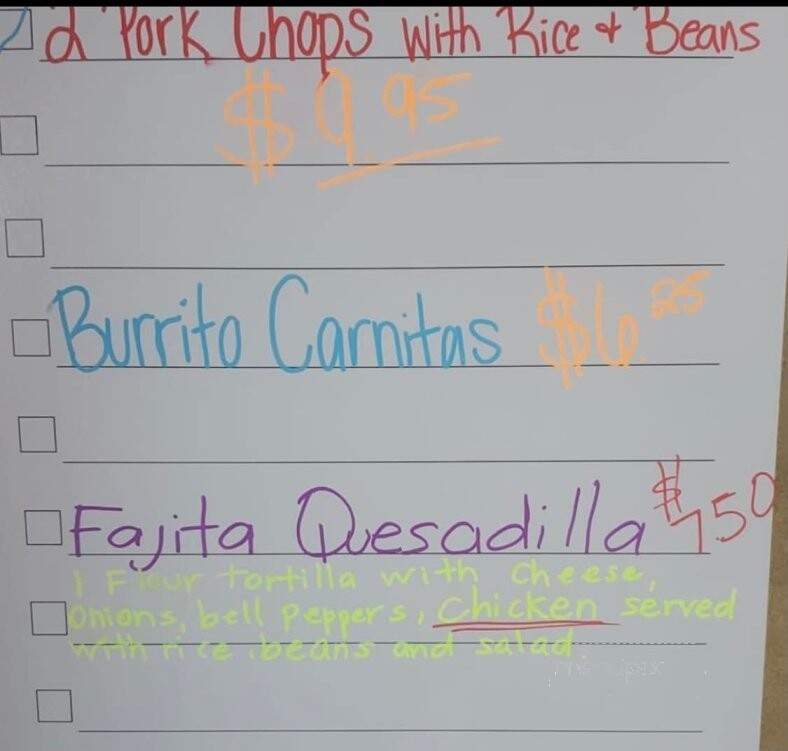 2 Pork Chops with Rice + Beans
$9.95
Burrito Carnitas $6.25
Fajita Quesadilla $7.50
1 Flour tortilla with cheese,
onions, bell peppers, chicken served
with rice, beans and salad